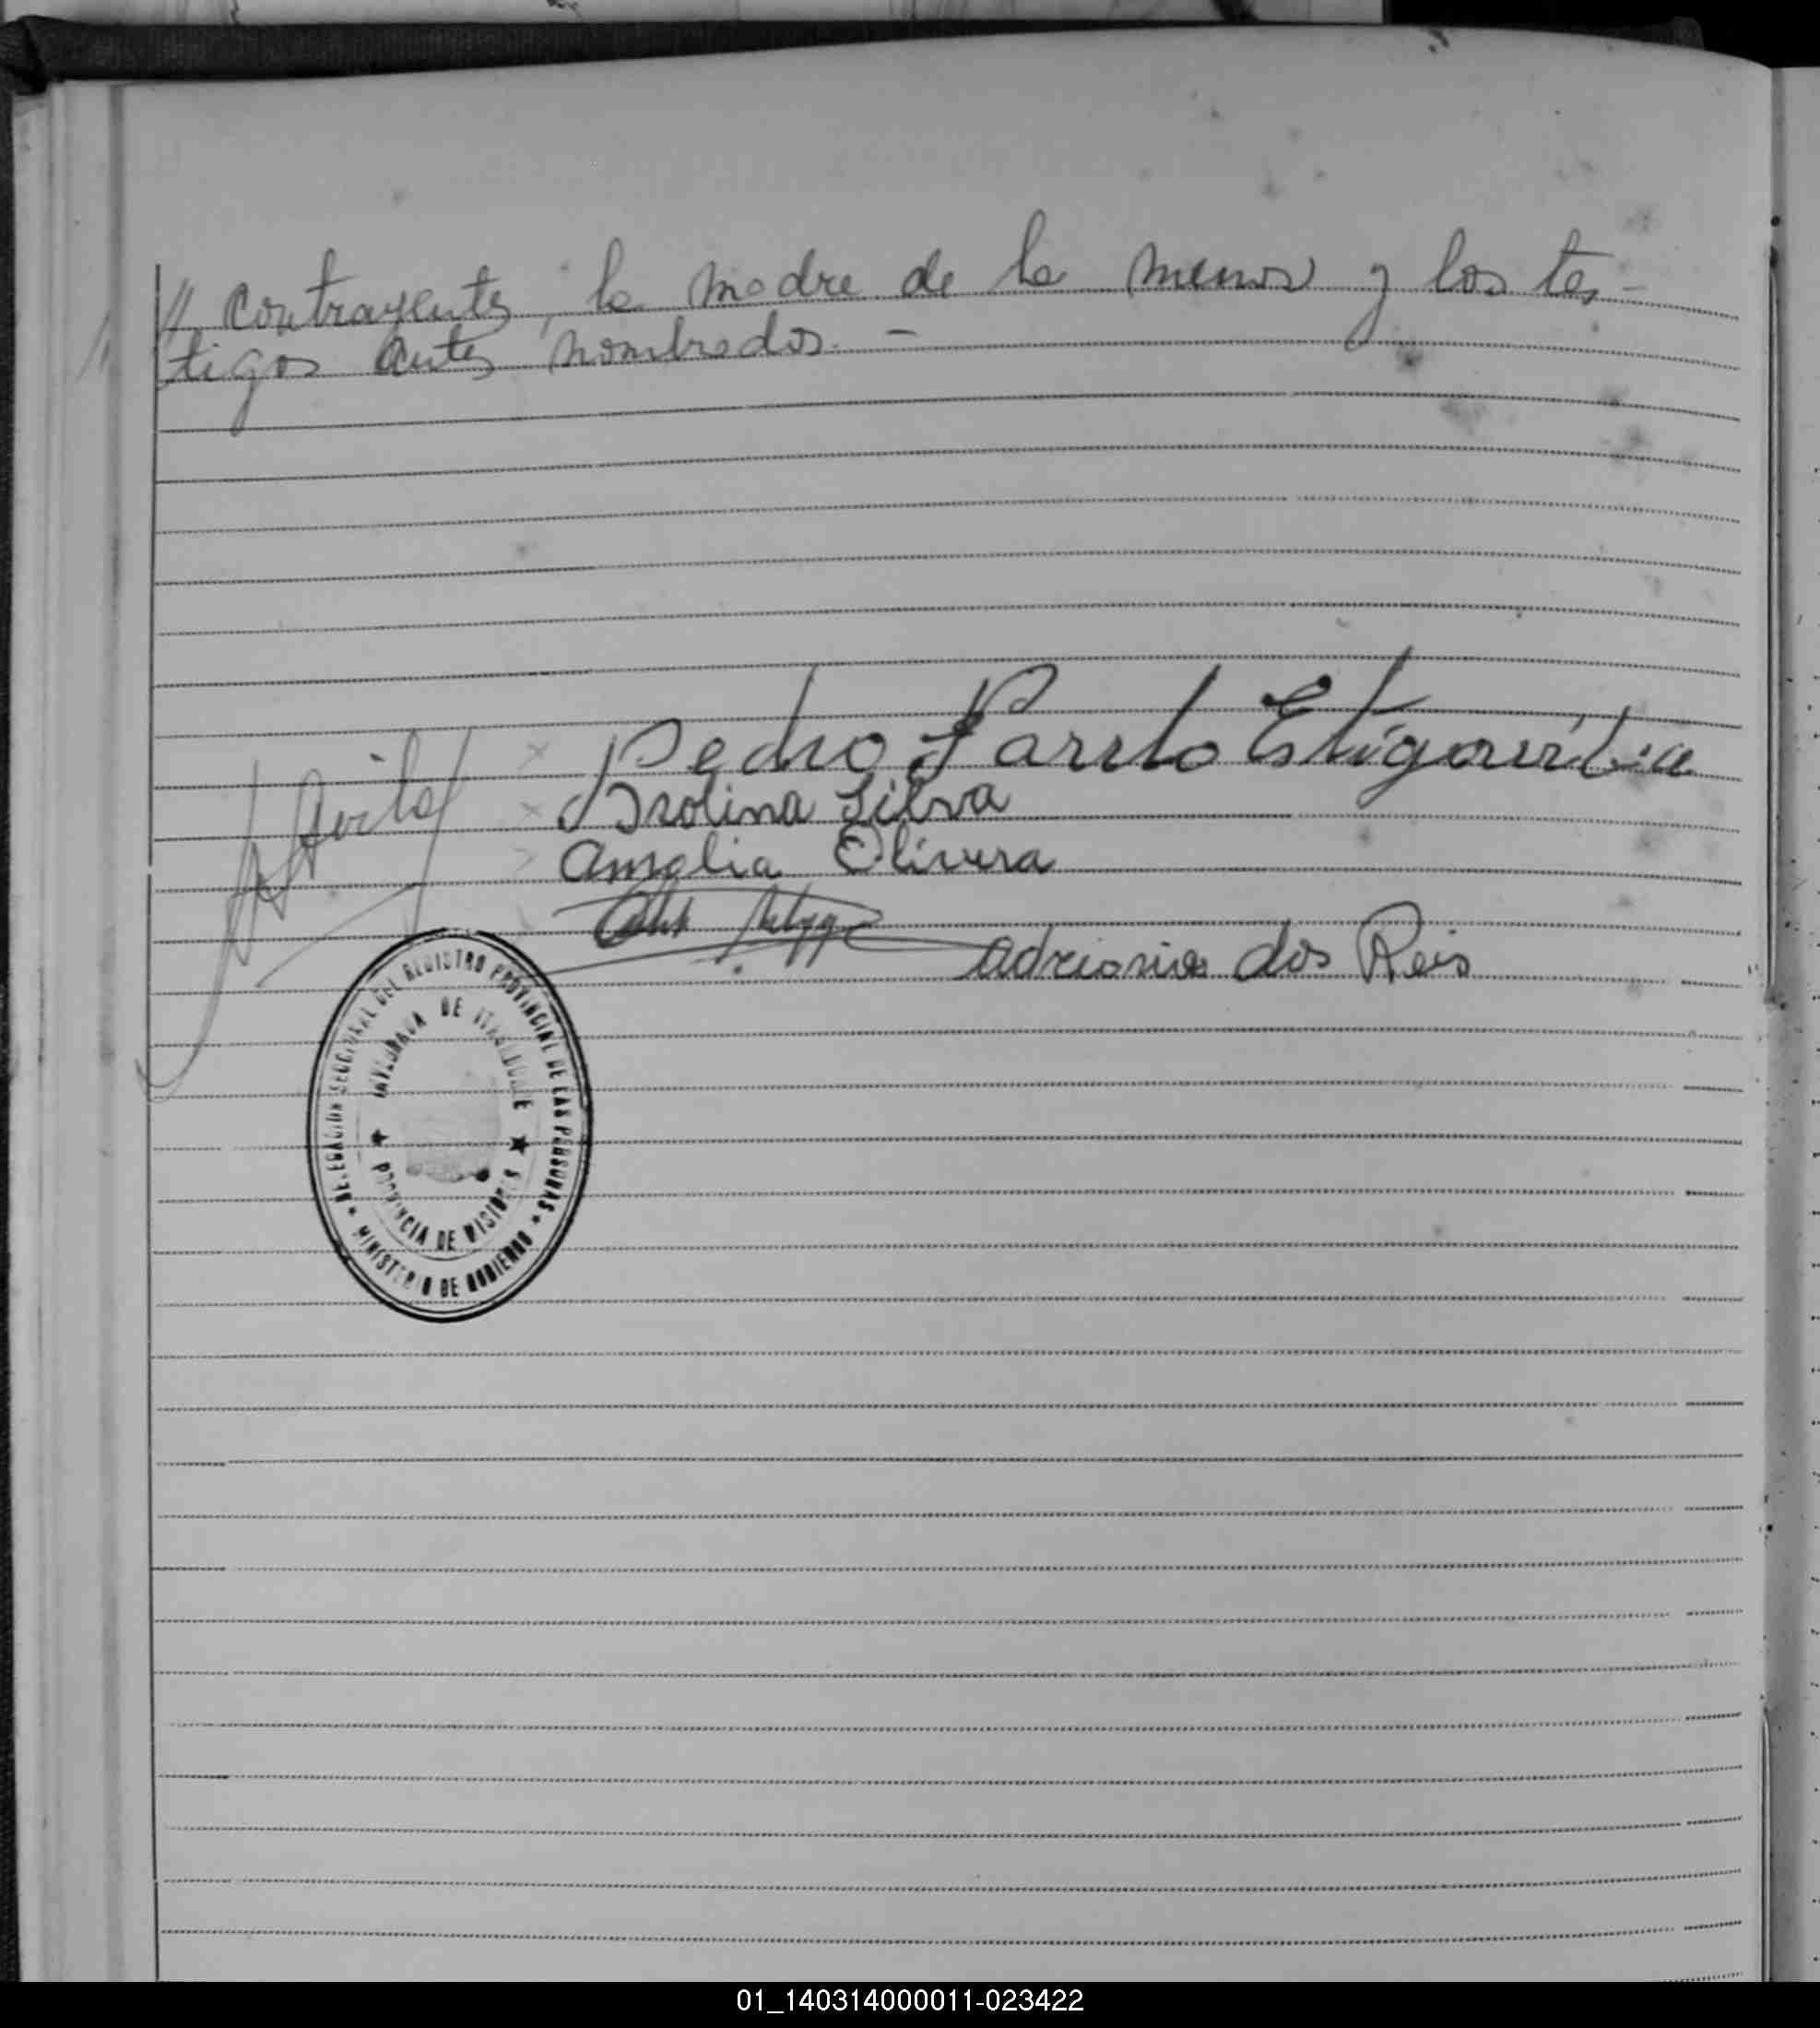 // contrayentes, la madre de la menor y los tes-
tigos antes nombrados. -
Pedro Pardo Estigarribia
Isolina Silva
Amalia Olivera
Adriano dos Reis
DELEGACION SECCIONAL DEL REGISTRO PROVINCIAL DE LAS PERSONAS
MINISTERIO DE GOBIERNO
DE
PROVINCIA DE MISIONES
01_140314000011-023422